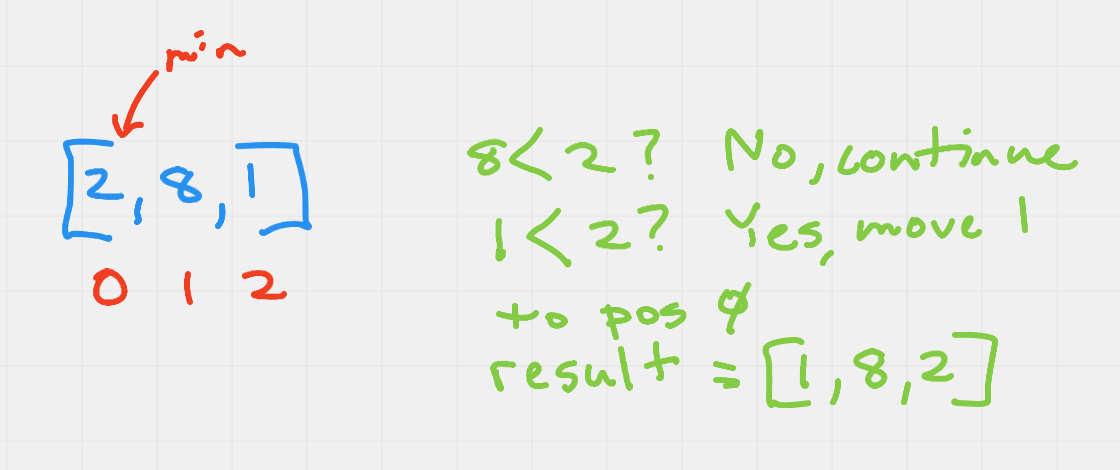 min
[2, 8, 1]
0 1 2
8 < 2? No, continue
1 < 2? Yes, move 1
to pos 0
result = [1, 8, 2]